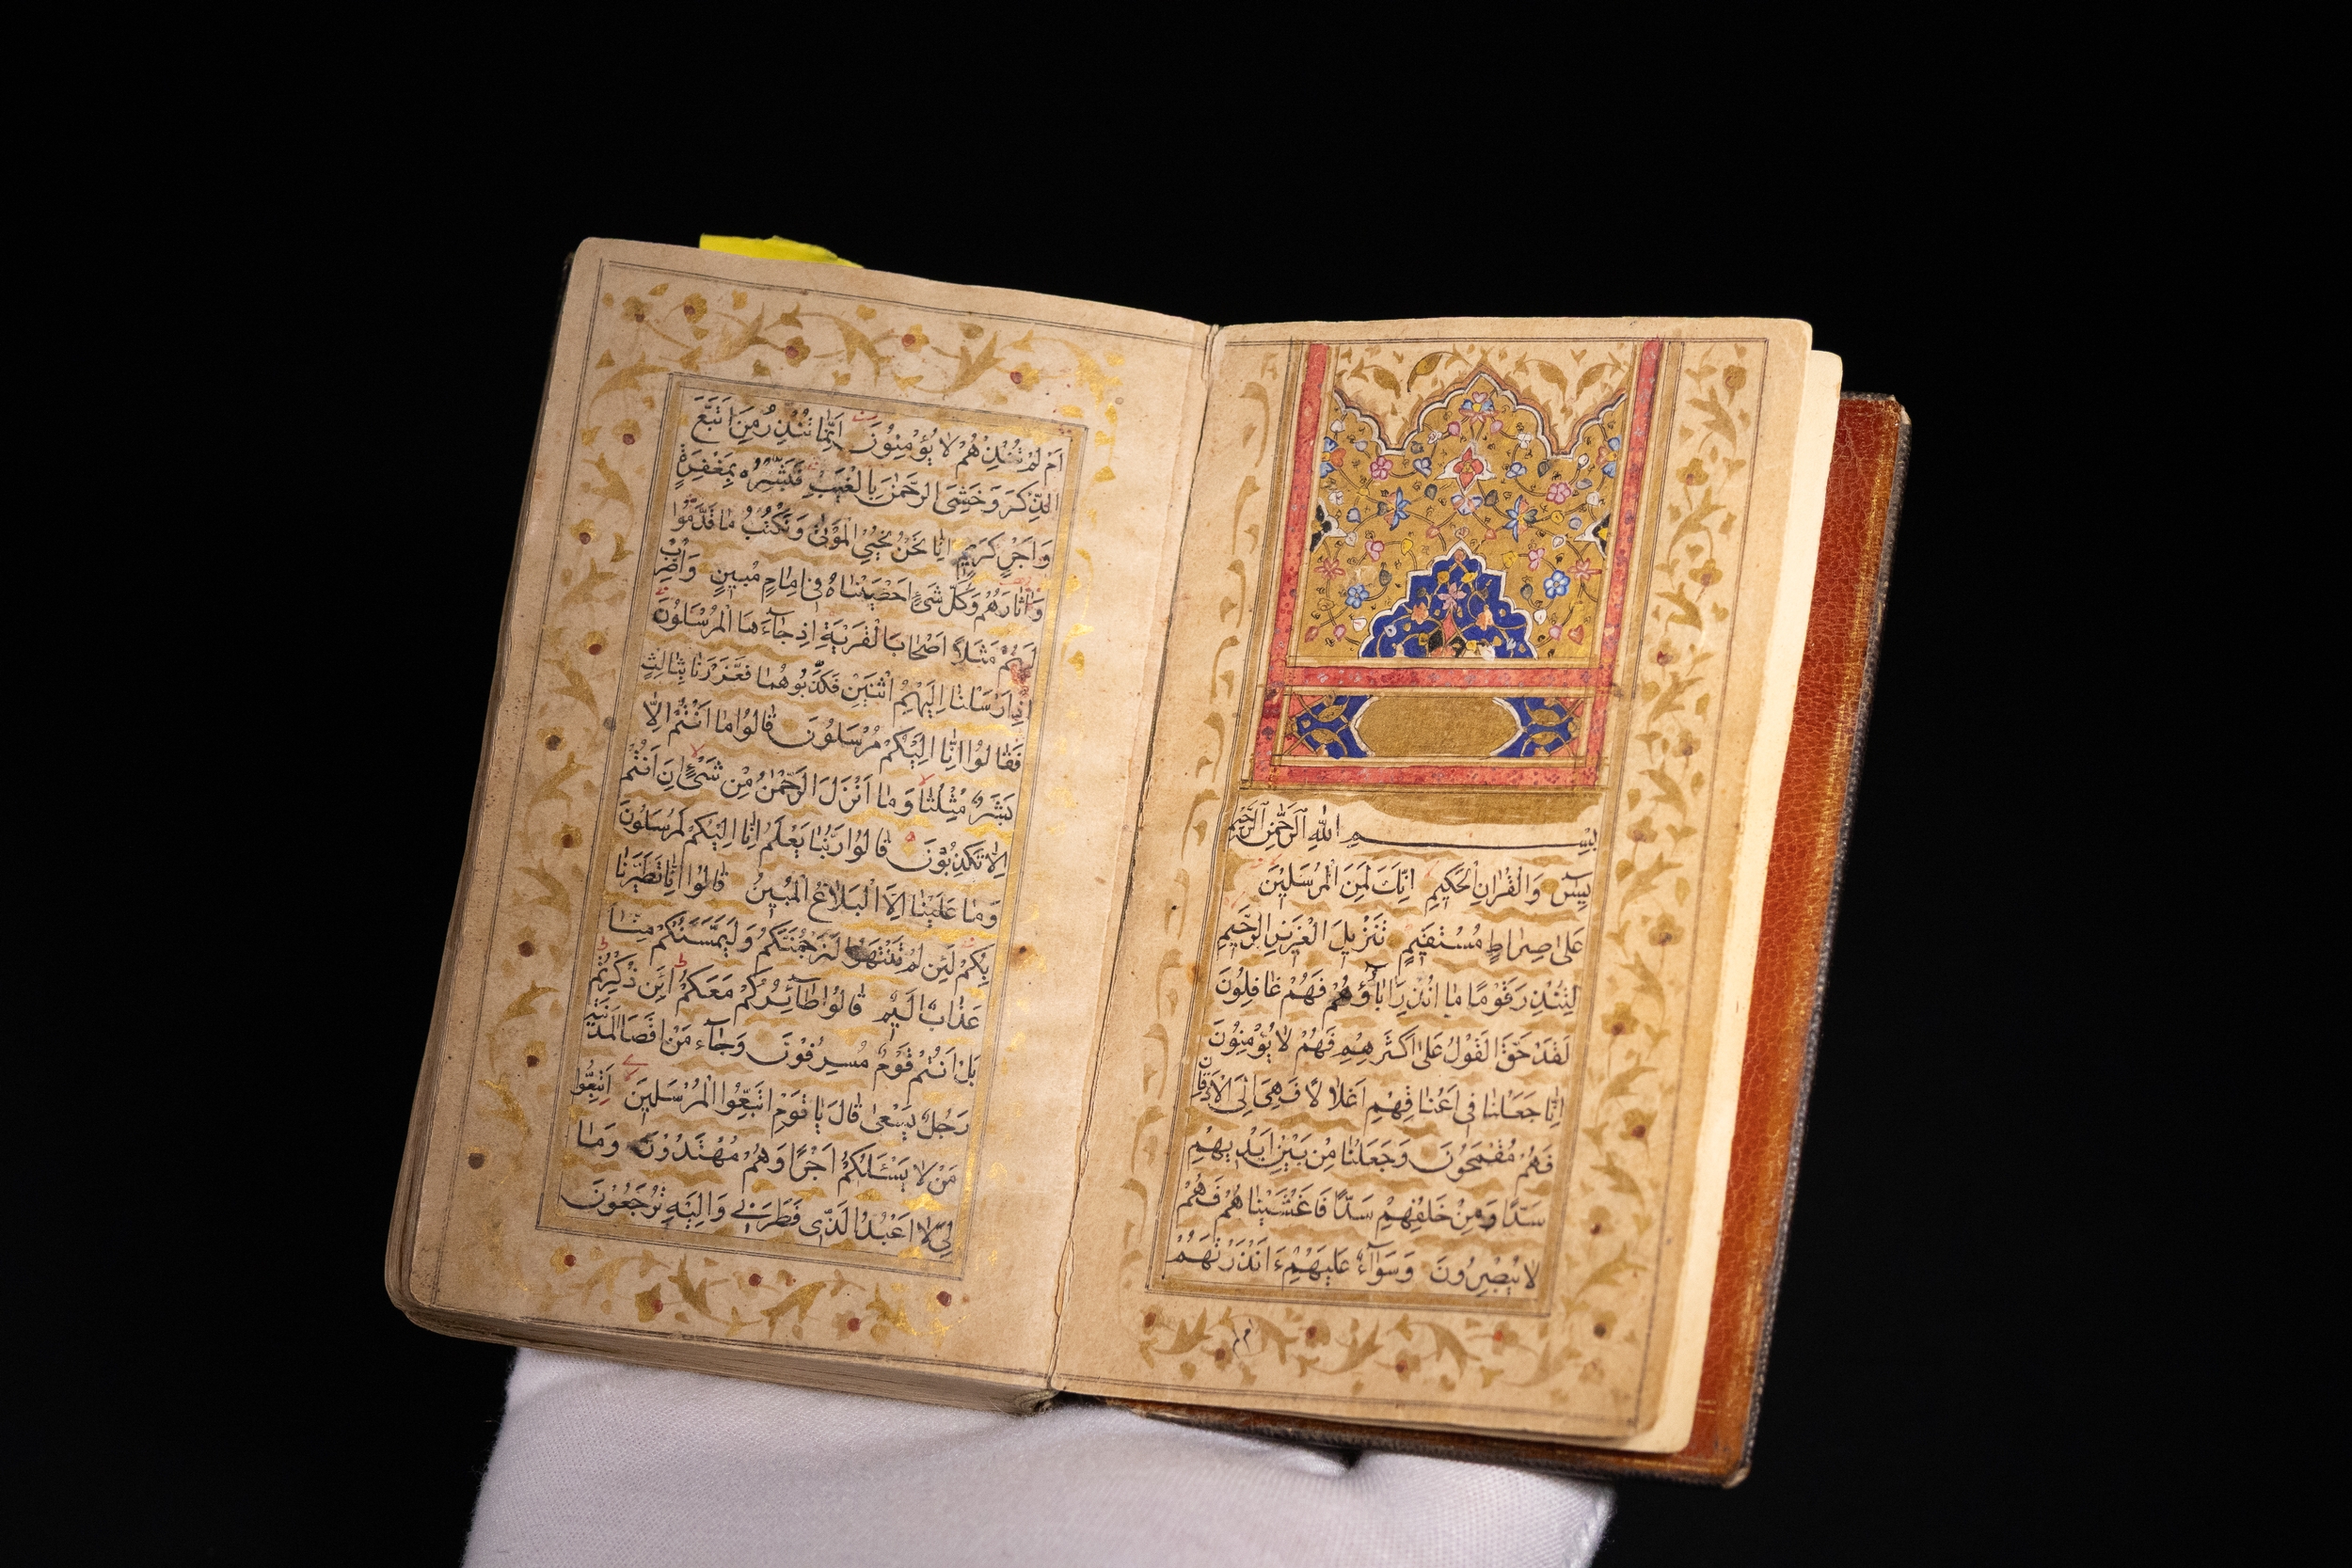 بِسْمِ اللهِ الرَّحْمٰنِ الرَّحِيْمِ
يٰسٓ وَالْقُرْاٰنِ الْحَكِيْمِ اِنَّكَ لَمِنَ الْمُرْسَلِيْنَ
عَلٰى صِرَاطٍ مُسْتَقِيْمٍ تَنْزِيْلَ الْعَزِيْزِ الرَّحِيْمِ
لِتُنْذِرَ قَوْمًا مٰا اُنْذِرَ اٰبٰٓاؤُهُمْ فَهُمْ غٰافِلُوْنَ
لَقَدْ حَقَّ الْقَوْلُ عَلٰى اَكْثَرِهِمْ فَهُمْ لٰا يُؤْمِنُوْنَ
اِنّٰا جَعَلْنٰا فِى اَعْنٰاقِهِمْ اَغْلٰالًا فَهِىَ اِلَى الْاَذْقٰانِ
فَهُمْ مُقْمَحُوْنَ وَجَعَلْنٰا مِنْ بَيْنِ اَيْدِيْهِمْ
سَدًّا وَمِنْ خَلْفِهِمْ سَدًّا فَاَغْشَيْنٰاهُمْ فَهُمْ
لٰا يُبْصِرُوْنَ وَسَوٰٓاءٌ عَلَيْهِمْ ءَاَنْذَرْتَهُمْ
اَمْ لَمْ تُنْذِرْهُمْ لٰا يُؤْمِنُوْنَ اِنَّمٰا تُنْذِرُ مَنِ اتَّبَعَ
الذِّكْرَ وَخَشِىَ الرَّحْمٰنَ بِالْغَيْبِ فَبَشِّرْهُ بِمَغْفِرَةٍ
وَاَجْرٍ كَرِيْمٍ اِنّٰا نَحْنُ نُحْيِي الْمَوْتٰى وَنَكْتُبُ مٰا قَدَّمُوْا
وَاٰثٰارَهُمْ وَكُلَّ شَىْءٍ اَحْصَيْنٰاهُ فِى اِمٰامٍ مُبِيْنٍ وَاضْرِبْ
لَهُمْ مَثَلًا اَصْحٰابَ الْقَرْيَةِ اِذْ جٰٓاءَهَا الْمُرْسَلُوْنَ
اِذْ اَرْسَلْنٰا اِلَيْهِمُ اثْنَيْنِ فَكَذَّبُوْهُمٰا فَعَزَّزْنٰا بِثٰالِثٍ
فَقٰالُوْا اِنّٰا اِلَيْكُمْ مُرْسَلُوْنَ قٰالُوْا مٰا اَنْتُمْ اِلّٰا
بَشَرٌ مِثْلُنٰا وَمٰا اَنْزَلَ الرَّحْمٰنُ مِنْ شَىْءٍ اِنْ اَنْتُمْ
اِلّٰا تَكْذِبُوْنَ قٰالُوْا رَبُّنٰا يَعْلَمُ اِنّٰا اِلَيْكُمْ لَمُرْسَلُوْنَ
وَمٰا عَلَيْنٰا اِلَّا الْبَلٰاغُ الْمُبِيْنُ قٰالُوْا اِنّٰا تَطَيَّرْنٰا
بِكُمْ لَئِنْ لَمْ تَنْتَهُوْا لَنَرْجُمَنَّكُمْ وَلَيَمَسَّنَّكُمْ مِنّٰا
عَذٰابٌ اَلِيْمٌ قٰالُوْا طٰٓائِرُكُمْ مَعَكُمْ اَئِنْ ذُكِّرْتُمْ
بَلْ اَنْتُمْ قَوْمٌ مُسْرِفُوْنَ وَجٰٓاءَ مِنْ اَقْصَا الْمَدِيْنَةِ
رَجُلٌ يَسْعٰى قٰالَ يٰا قَوْمِ اتَّبِعُوا الْمُرْسَلِيْنَ اِتَّبِعُوْا
مَنْ لٰا يَسْـَٔلُكُمْ اَجْرًا وَهُمْ مُهْتَدُوْنَ وَمٰا
لِىَ لٰا اَعْبُدُ الَّذِى فَطَرَنِى وَاِلَيْهِ تُرْجَعُوْنَ